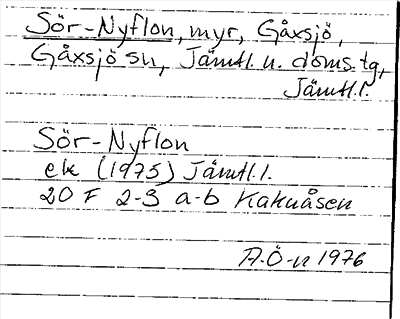 Sör-Nyflon, myr, Gåxsjö,
Gåxsjö sn, Jämtl. n. doms. tg,
Jämtl. l.
Sör-Nyflon
ek (1975) Jämtl. l.
20 F 2-3 a-b Kakuåsen
A.Ö-n 1976